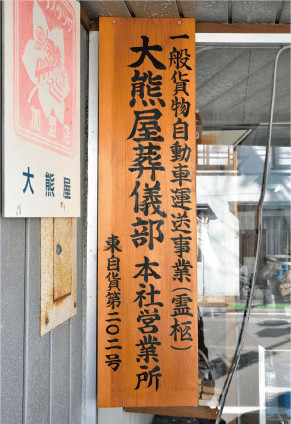 一般貨物自動車運送事業(霊柩)
大熊屋葬儀部 本社営業所
東自貨第二〇二号
加盟店
大熊屋